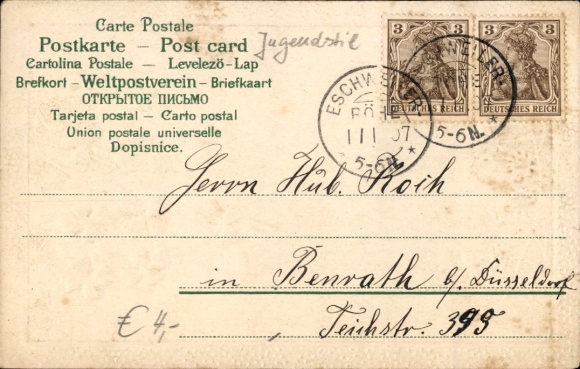 Carte Postale
Postkarte – Post card
Cartolina Postale – Levelezö-Lap
Brefkort - Weltpostverein - Briefkaart
ОТКРЫТОЕ ПИСЬМО
Tarjeta postal – Carto postal
Union postale universelle
Dopisnice.
Jugendstil
3 3
DEUTSCHES REICH
3 3
DEUTSCHES REICH
ESCHWEILER
5-6N.
WEILER
5-6N.
Herrn Hub. Koch
in Benrath b/Düsseldorf
Teichstr. 395
€ 4,-